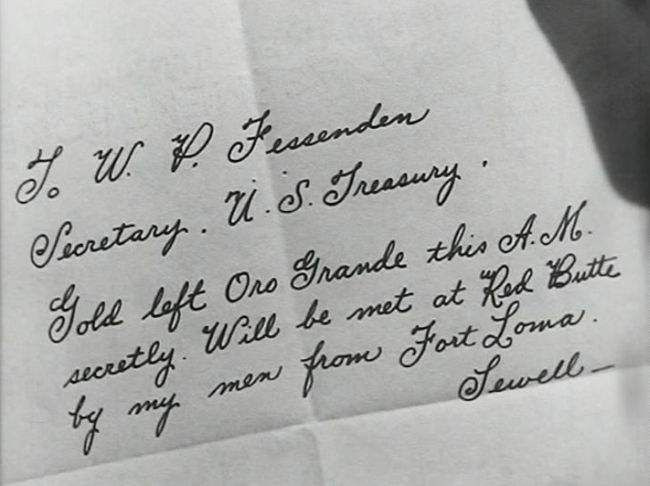 To W. P. Fessenden
Secretary. U.S. Treasury.
Gold left Oro Grande this A.M.
secretly. Will be met at Red Butte
by my men from Fort Loma.
Sewell —